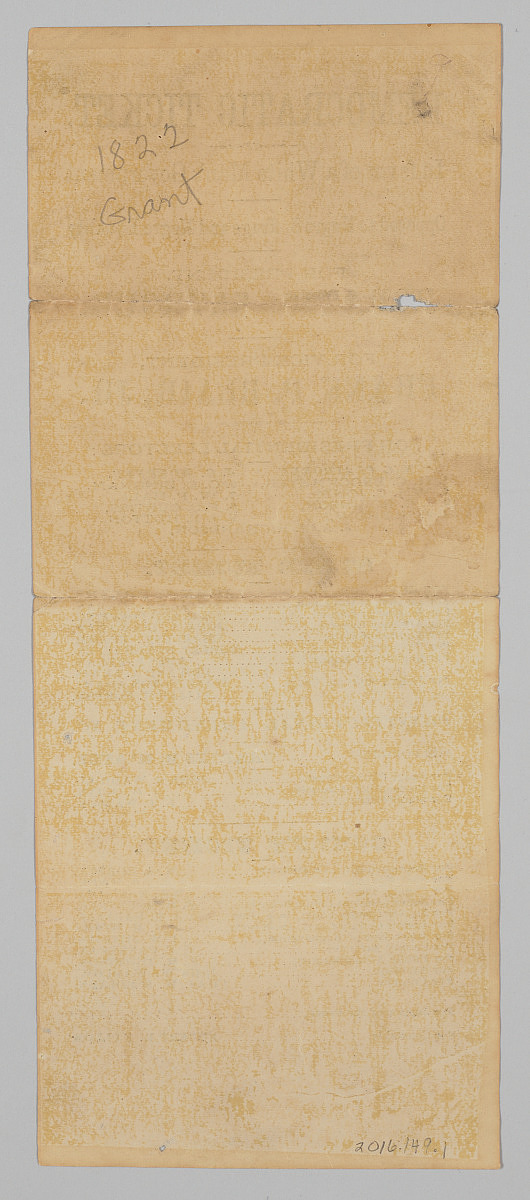 1822
Grant
2016.149.1